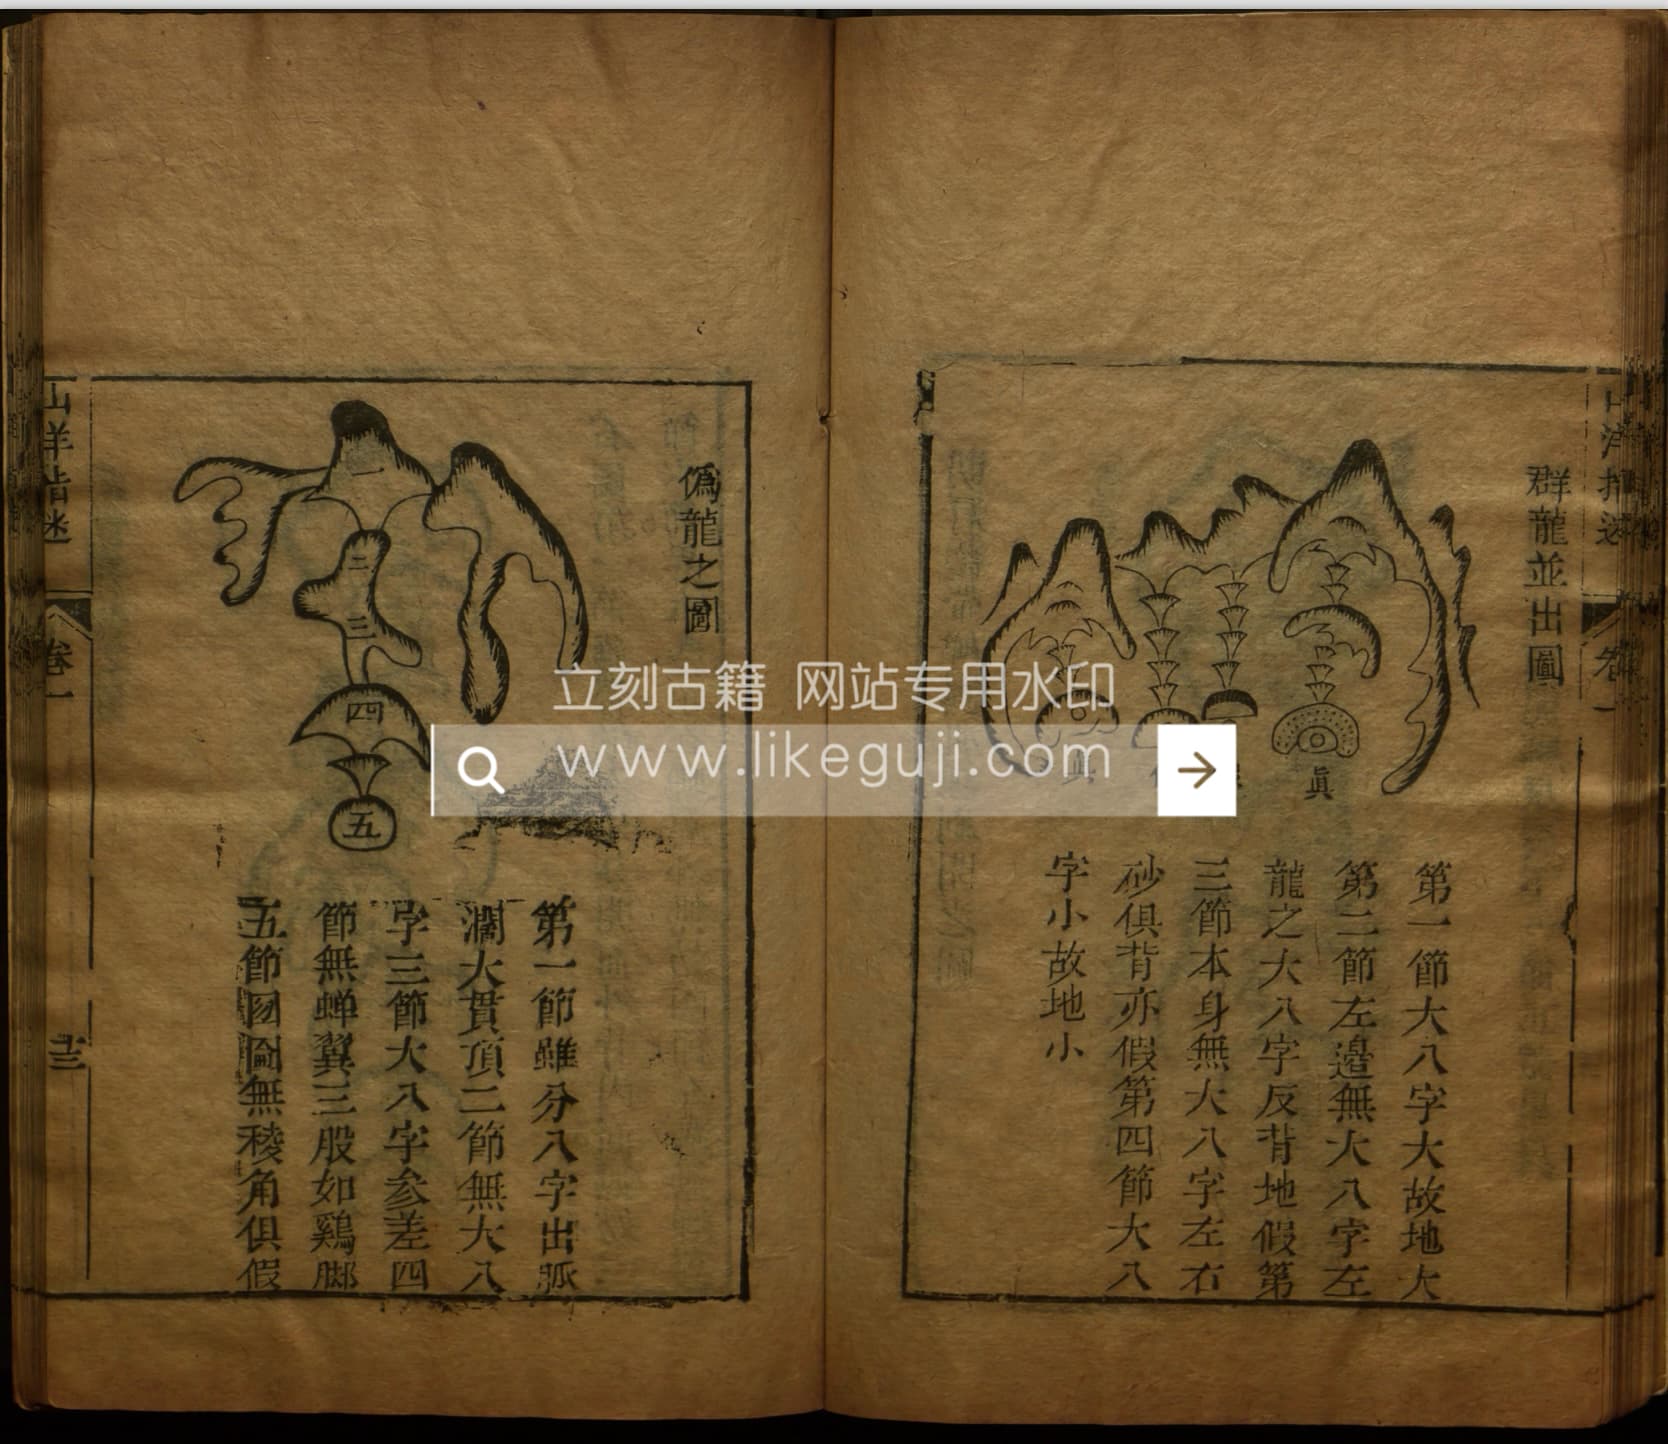 群龍並出圖
眞
第一節大八字大故地大
第二節左邉無大八字左
龍之大八字反背地假第
三節本身無大八字左右
砂俱背亦假第四節大八
字小故地小
偽龍之圖
一
二
三
四
五
第一節雖分八字出脈
濶大貫頂二節無大八
字三節大八字参差四
節無蝉翼三股如鷄脚
五節囫圇無稜角俱假
山洋指迷
卷一
十三
立刻古籍 网站专用水印
www.likeguji.com